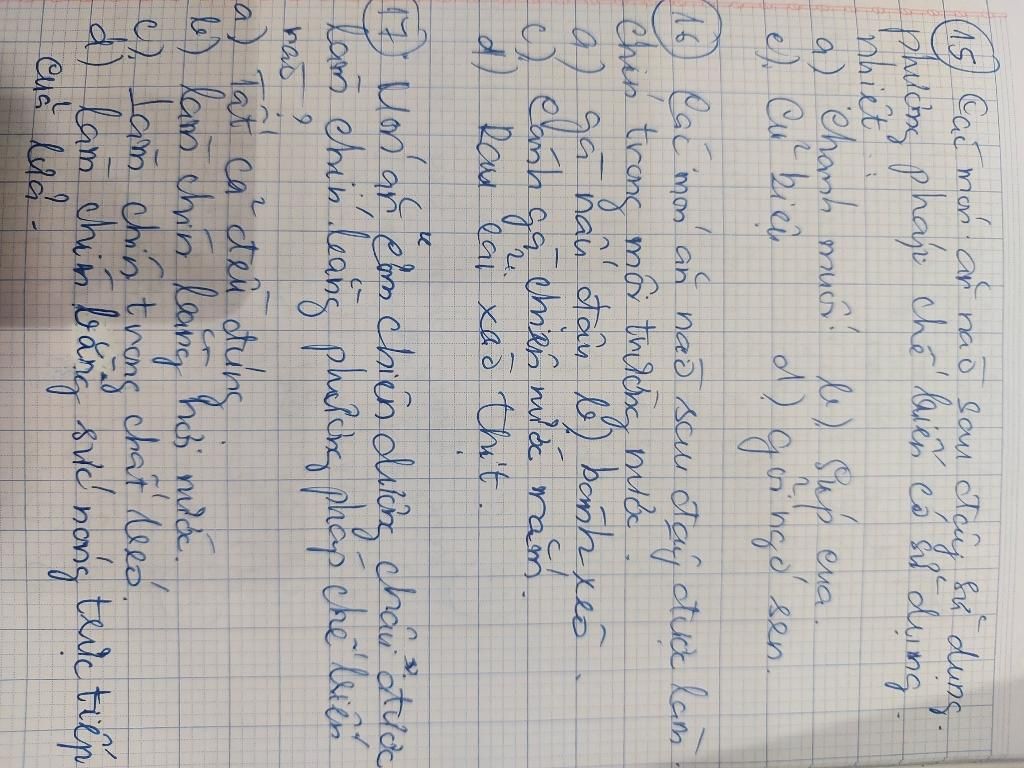 15 Các món ăn nào sau đây sử dụng
phương pháp chế biến có sử dụng
nhiệt :
a) Chanh muối b) Súp cua.
c) Củ kiệu d) gỏi ngó sen.
16 Các món ăn nào sau đây được làm
chín trong môi trường nước.
a) gà nấu đậu b) bánh xèo.
c) cánh gà chiên nước mắm.
d) Rau cải xào thịt.
17) Món ăn "Cơm chiên dương châu" được
làm chín bằng phương pháp chế biến
nào ?
a) Tất cả đều đúng
b) làm chín bằng hơi nước.
c) Làm chín trong chất béo.
d) làm chín bằng sức nóng trực tiếp
của lửa.